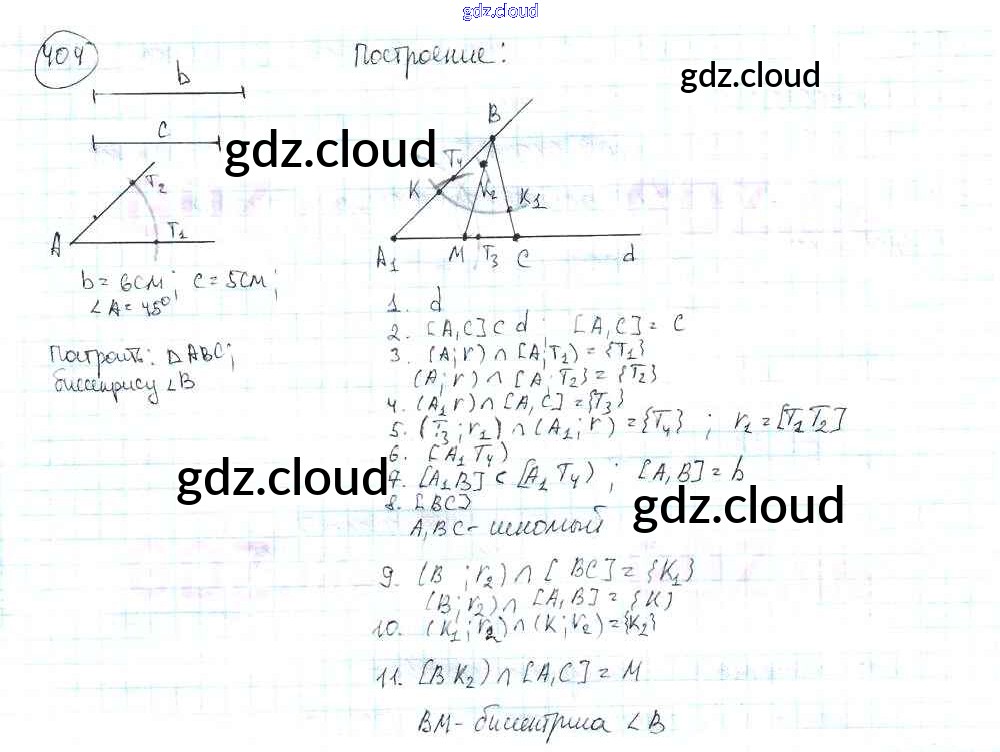 gdz.cloud
404
Построение:
b
gdz.cloud
c
gdz.cloud
B
T₄
T₂
K
K₂
K₁
A
T₁
A₁
M
T₃
C
d
b = 6см; c = 5см;
∠A = 45°
Построить: △ABC;
биссектрису ∠B
1. d
2. [A₁C] ⊂ d; [A₁C] = c
3. (A; r) ∩ [A; T₁) = {T₁}
(A; r) ∩ [A; T₂} = {T₂}
4. (A₁ r) ∩ [A₁C] = {T₃}
5. (T₃; r₁) ∩ (A₁; r) = {T₄} ; r₁ = [T₁T₂]
6. [A₁T₄)
gdz.cloud
7. [A₁B] ⊂ [A₁T₄) ; [A₁B] = b
8. [BC]
gdz.cloud
A₁BC - искомый
9. (B ; r₂) ∩ [BC] = {K₁}
(B; r₂) ∩ [A₁B] = {K}
10. (K₁; r₂) ∩ (K; r₂) = {K₂}
11. [BK₂) ∩ [A₁C] = M
BM - биссектриса ∠B